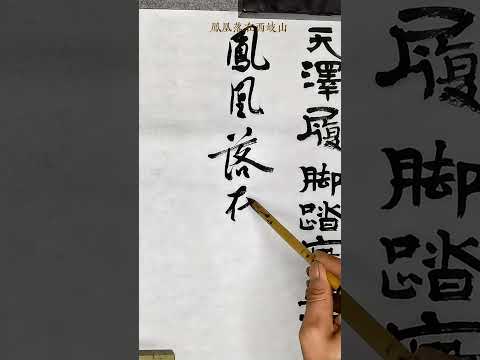 鳳凰落在西岐山
天澤履 脚踏
鳳凰落在